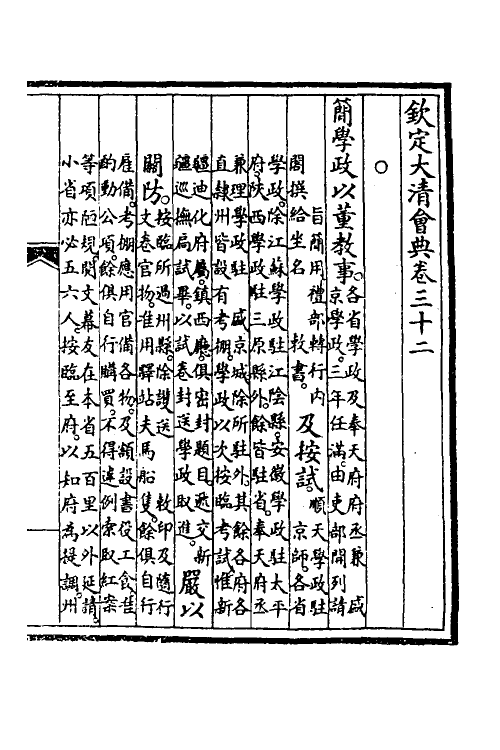 欽定大清會典卷三十二
○
簡學政以董教事。各省學政及奉天府府丞兼 盛
京學政。三年任滿。由吏部開列請
旨簡用禮部轉行内
閣撰給坐名 敕書。
及按試。順天學政駐
京師。各省
學政。除江蘇學政駐江陰縣。安徽學政駐太平
府。陝西學政駐三原縣外。餘皆駐省。奉天府丞
兼理學政駐 盛京城。除所駐外。其餘各府各
直隸州皆設有考棚。學政以次按臨考試。惟新
疆迪化府屬。鎮西廳。俱密封題目。遞交新
疆巡撫扃試畢。以試卷封送學政取進。
嚴以
關防。按臨所過州縣。除護送 敕印及隨行
文卷官物。准用驛站夫馬船隻。餘俱自行
雇備。考棚應用官備各物。及額設書役工食。准
酌動公項。餘俱自行購買。不得違例索取紅案
等項陋規。閱文幕友在本省五百里以外延請。
小省亦必五六人。按臨至府。以知府為提調。州